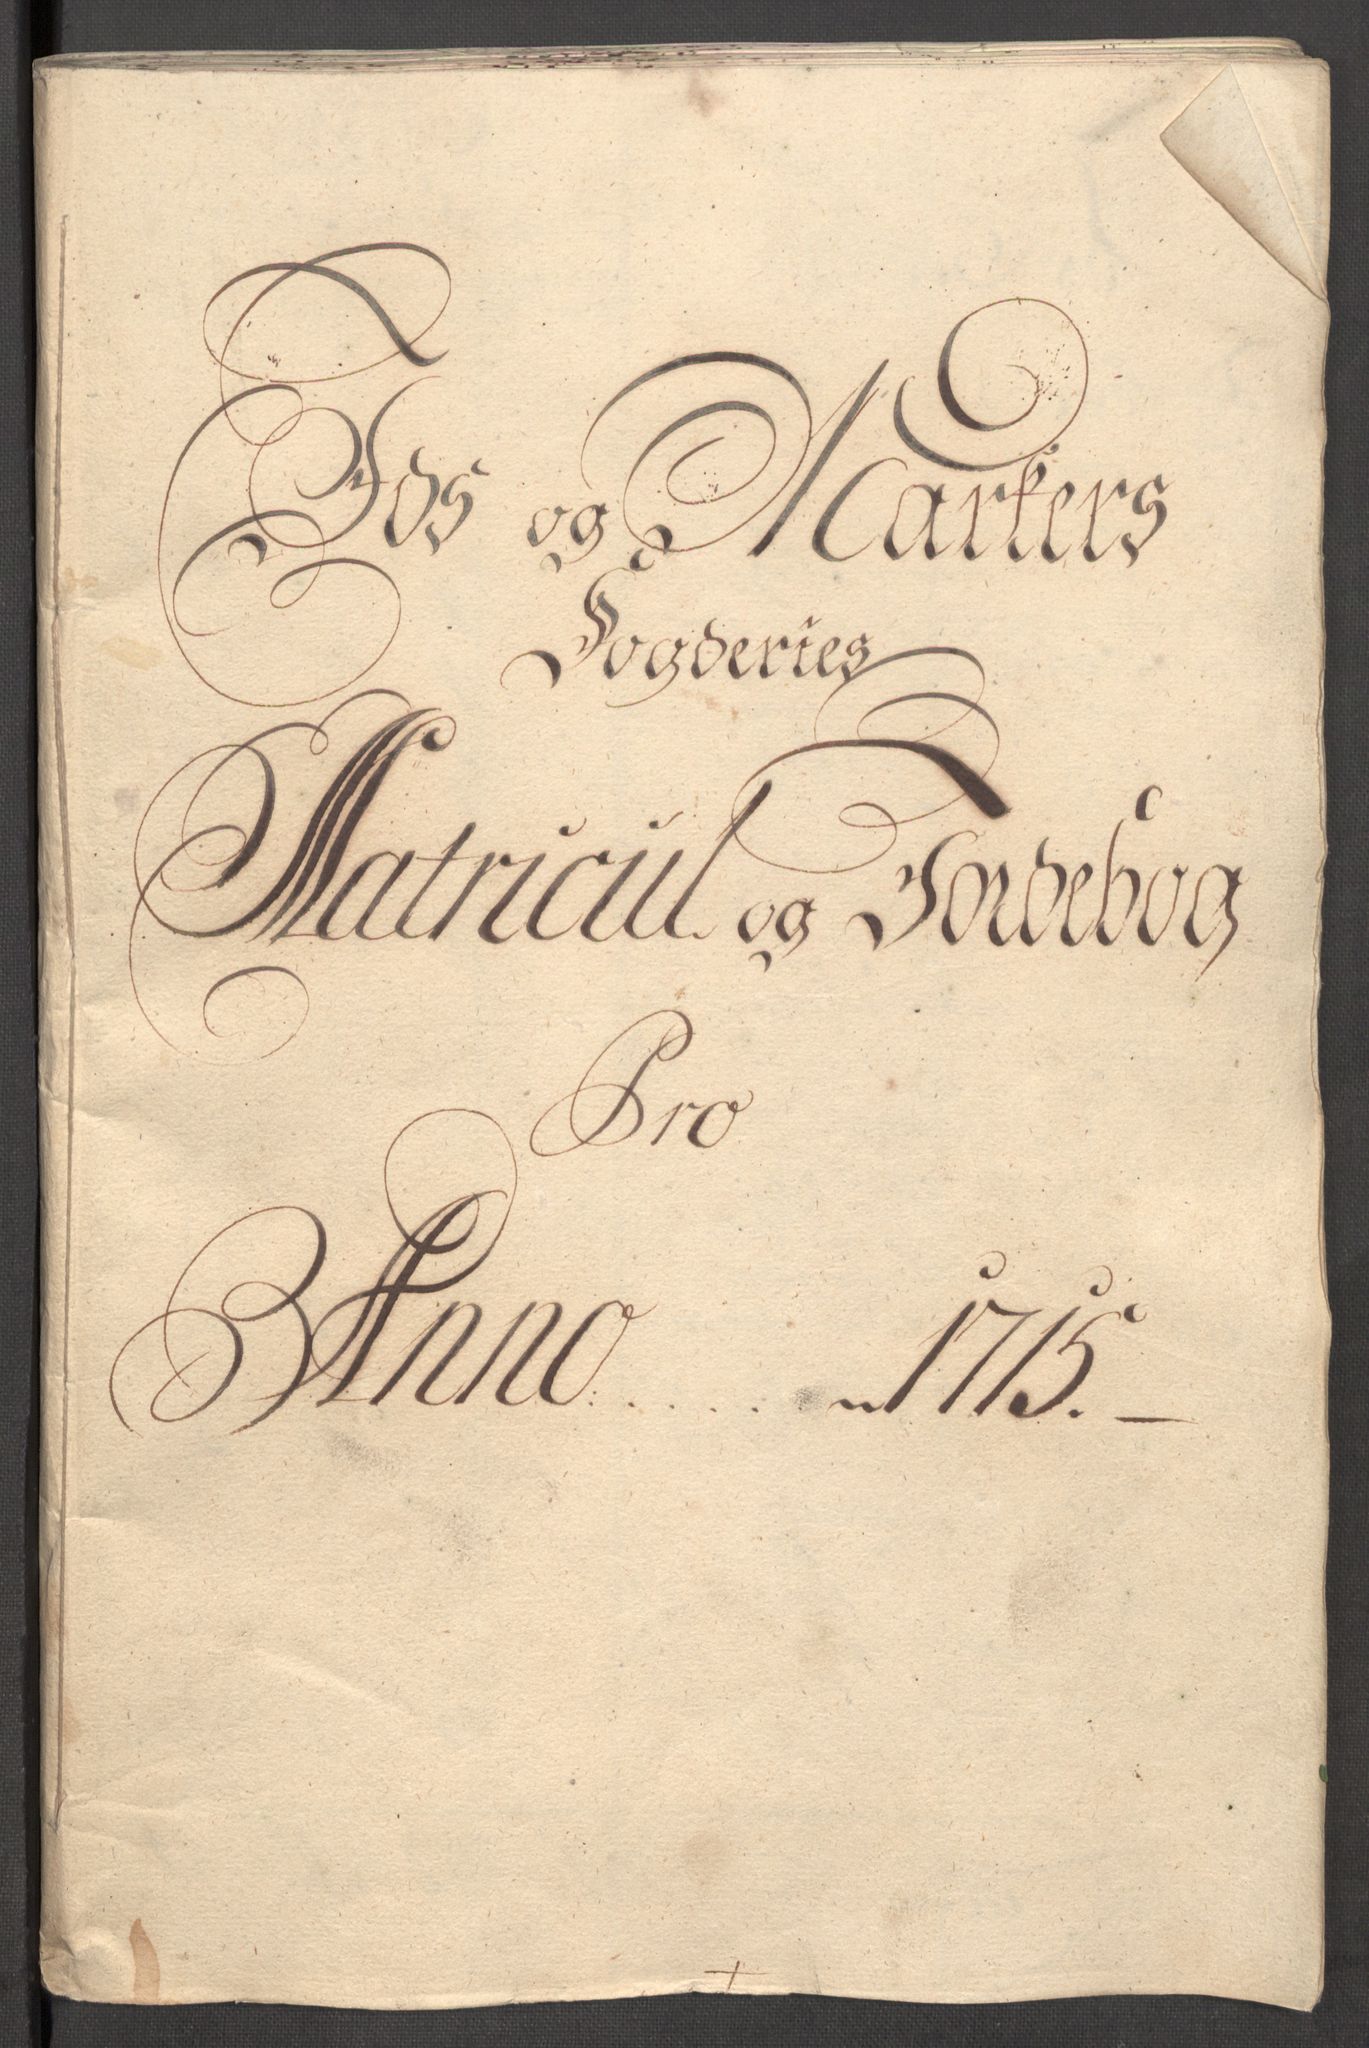 Ids og Markers
Fogderies
Matricul og Jordebog
Pro
Anno ..... 1715. —